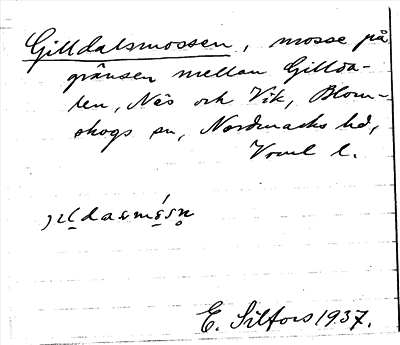 Gilldalsmossen, mosse på
gränsen mellan Gillda-
len, Näs och Vik, Blom-
skogs sn, Nordmarks hd,
Vrml l.
E. Silfors 1937.